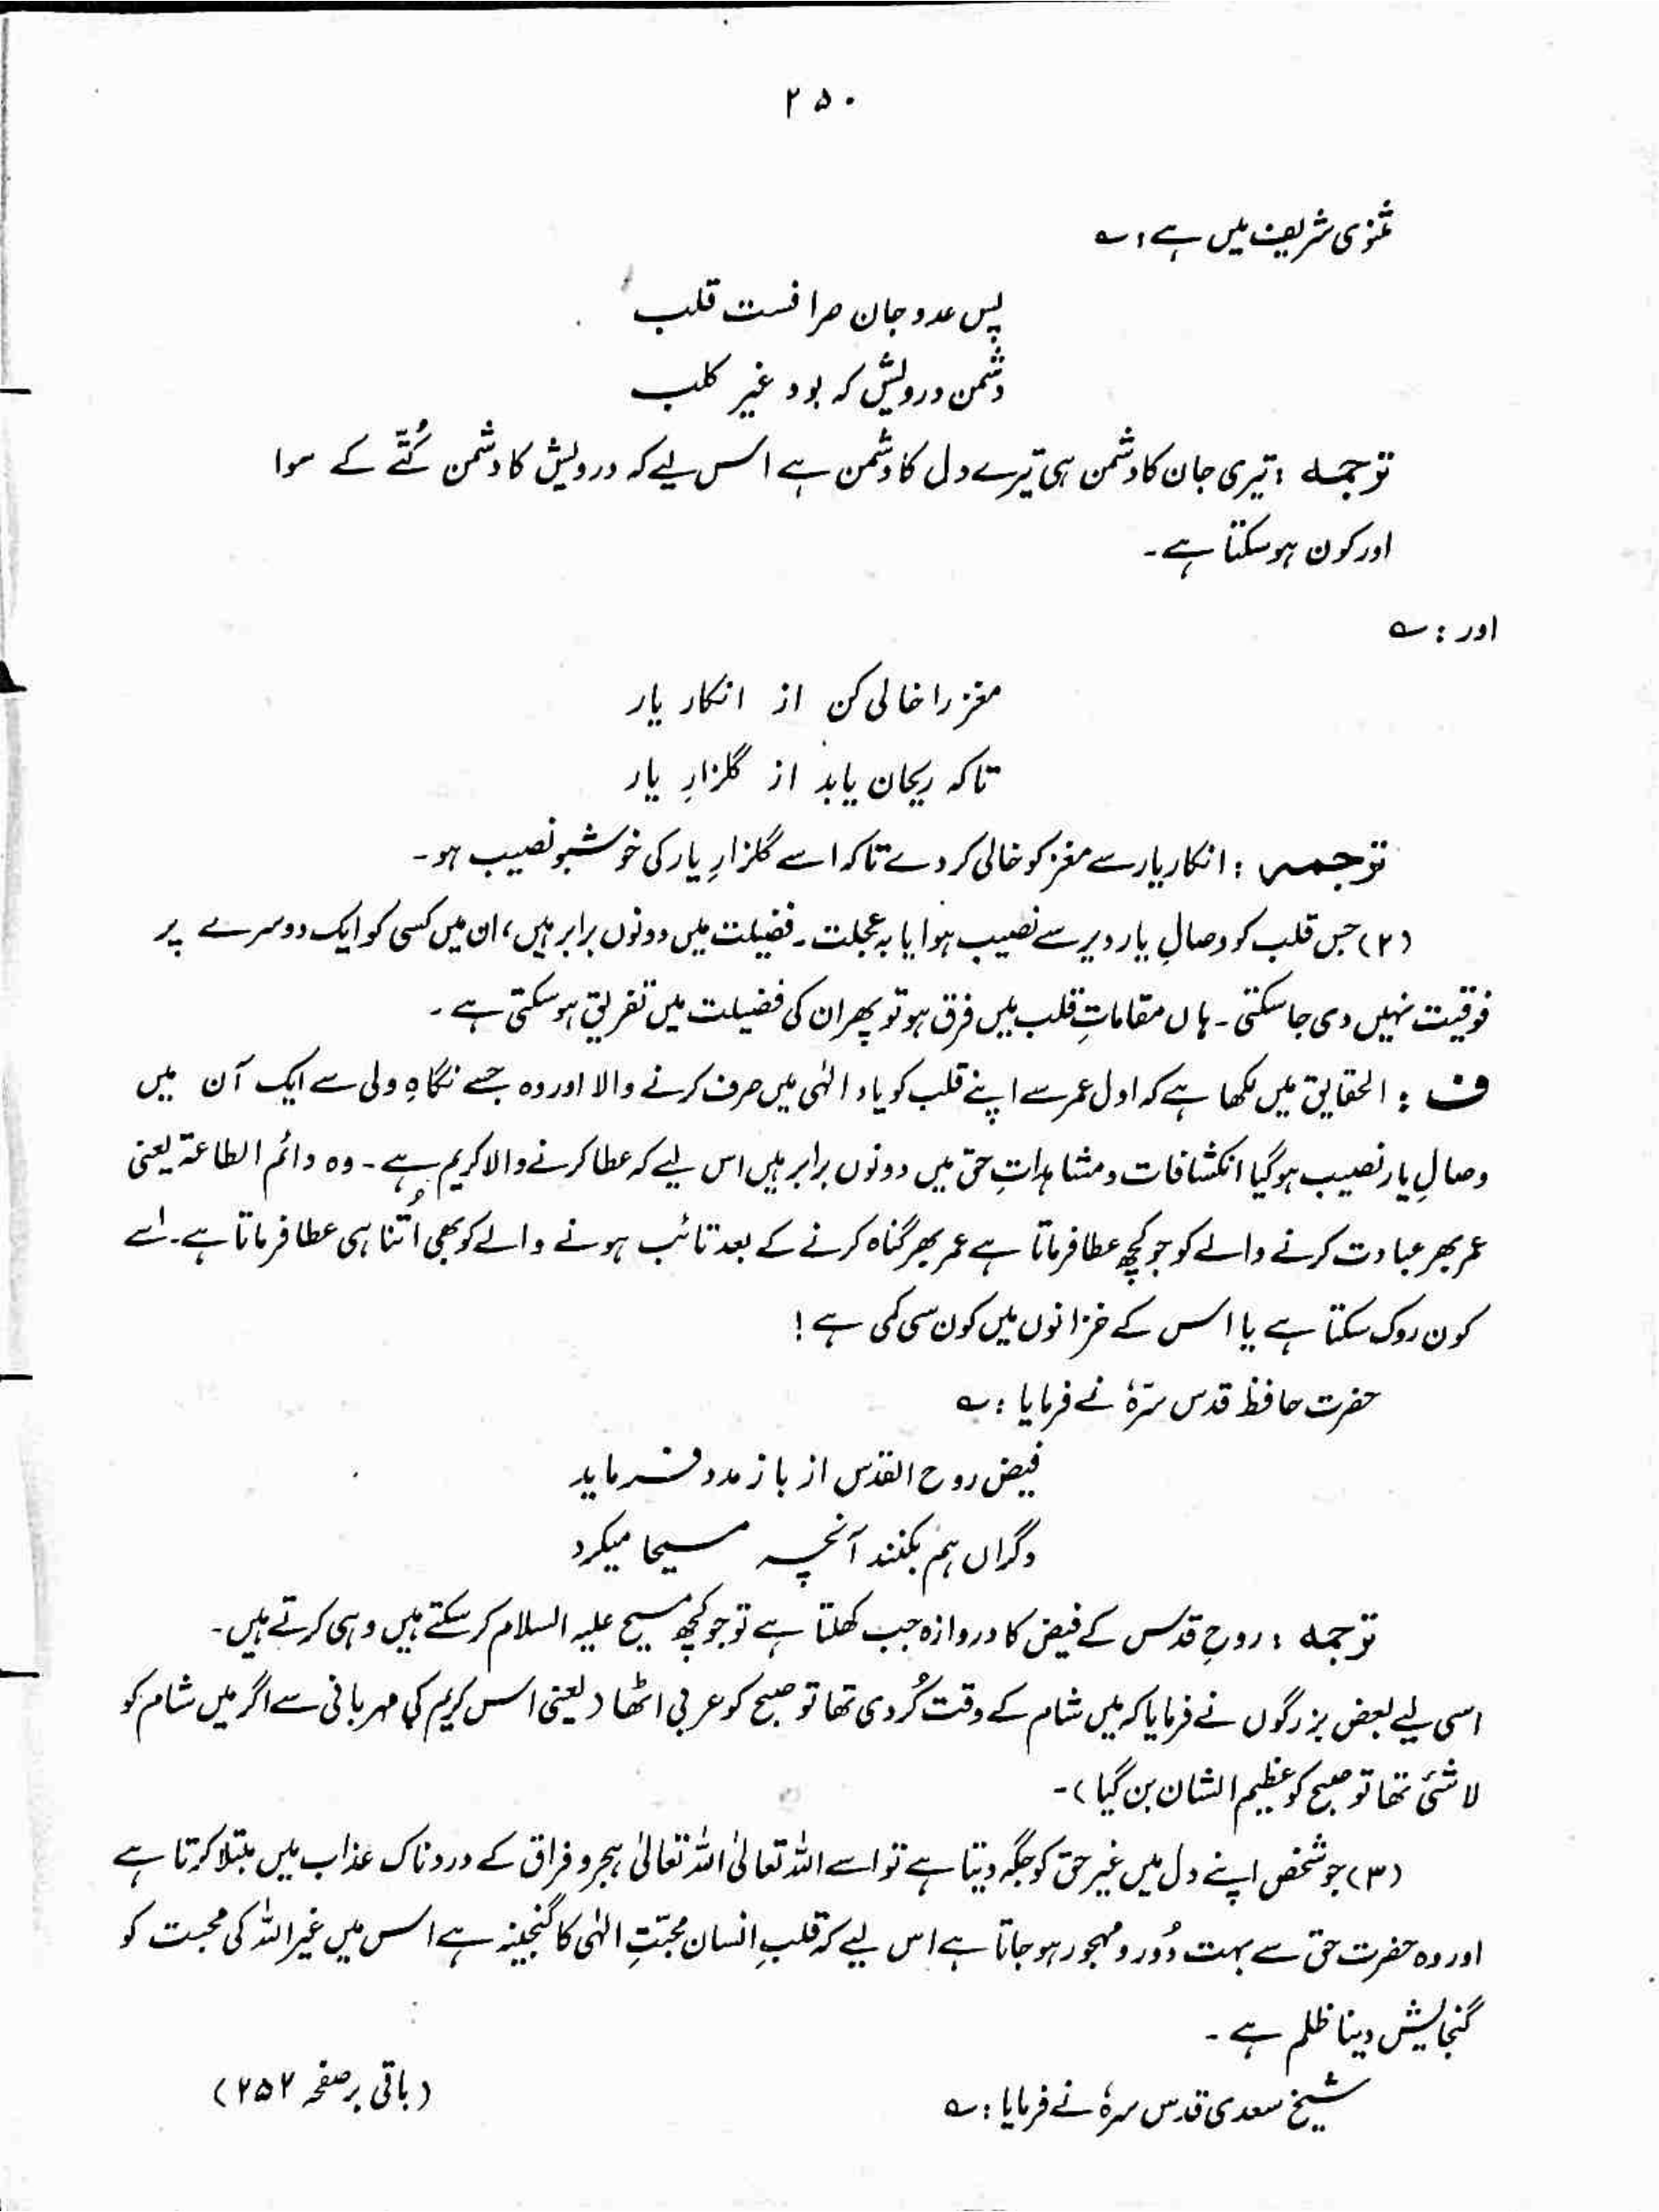 ۲۵۰
مثنوی شریف میں ہے : ؎
پس عدو جان صرافست قلب
دشمن درویش کہ بود غیر کلب
توجمہ : تیری جان کا دشمن ہی تیرے دل کا دشمن ہے اس لیے کہ درویش کا دشمن کُتّے کے سوا
اور کون ہو سکتا ہے ۔
اور : ؎
مغز را خالی کن از انکار یار
تاکہ ریحان یابد از گلزارِ یار
توجمہ : انکار یار سے مغز کو خالی کر دے تاکہ اسے گلزارِ یار کی خوشبو نصیب ہو ۔
(۲) جس قلب کو وصالِ یار دیر سے نصیب ہوا یا بہ عجلت ۔ فضیلت میں دونوں برابر ہیں ، ان میں کسی کو ایک دوسرے پر
فوقیت نہیں دی جا سکتی ۔ ہاں مقاماتِ قلب میں فرق ہو تو پھر ان کی فضیلت میں تفریق ہو سکتی ہے ۔
ف : الحقایق میں لکھا ہے کہ اول عمر سے اپنے قلب کو یاد الٰہی میں صرف کرنے والا اور وہ جسے نگاہِ ولی سے ایک آن میں
وصالِ یار نصیب ہو گیا انکشافات و مشاہداتِ حق میں دونوں برابر ہیں اس لیے کہ عطا کرنے والا کریم ہے ۔ وہ دائم الطاعۃ یعنی
عمر بھر عبادت کرنے والے کو جو کچھ عطا فرماتا ہے عمر بھر گناہ کرنے کے بعد تائب ہونے والے کو بھی اُتنا ہی عطا فرماتا ہے ۔ اسے
کون روک سکتا ہے یا اس کے خزانوں میں کون سی کمی ہے !
حضرت حافظ قدس سرّہٗ نے فرمایا : ؎
فیض روح القدس از باز مدد فرماید
دگراں ہم بکنند آنچہ مسیحا میکرد
توجمہ : روحِ قدس کے فیض کا دروازہ جب کھلتا ہے تو جو کچھ مسیح علیہ السلام کر سکتے ہیں وہی کرتے ہیں ۔
اسی لیے بعض بزرگوں نے فرمایا کہ میں شام کے وقت کُردی تھا تو صبح کو عربی اٹھا (یعنی اس کریم کی مہربانی سے اگر میں شام کو
لاشئ تھا تو صبح کو عظیم الشان بن گیا) ۔
(۳) جو شخص اپنے دل میں غیر حق کو جگہ دیتا ہے تو اسے اللہ تعالیٰ اللہ تعالیٰ ہجر و فراق کے دردناک عذاب میں مبتلا کرتا ہے
اور وہ حضرت حق سے بہت دُور و مہجور ہو جاتا ہے اس لیے کہ قلبِ انسان محبّتِ الٰہی کا گنجینہ ہے اس میں غیر اللہ کی محبت کو
گنجایش دینا ظلم ہے ۔
شیخ سعدی قدس سرہٗ نے فرمایا : ؎
(باقی بر صفحہ ۲۵۲)